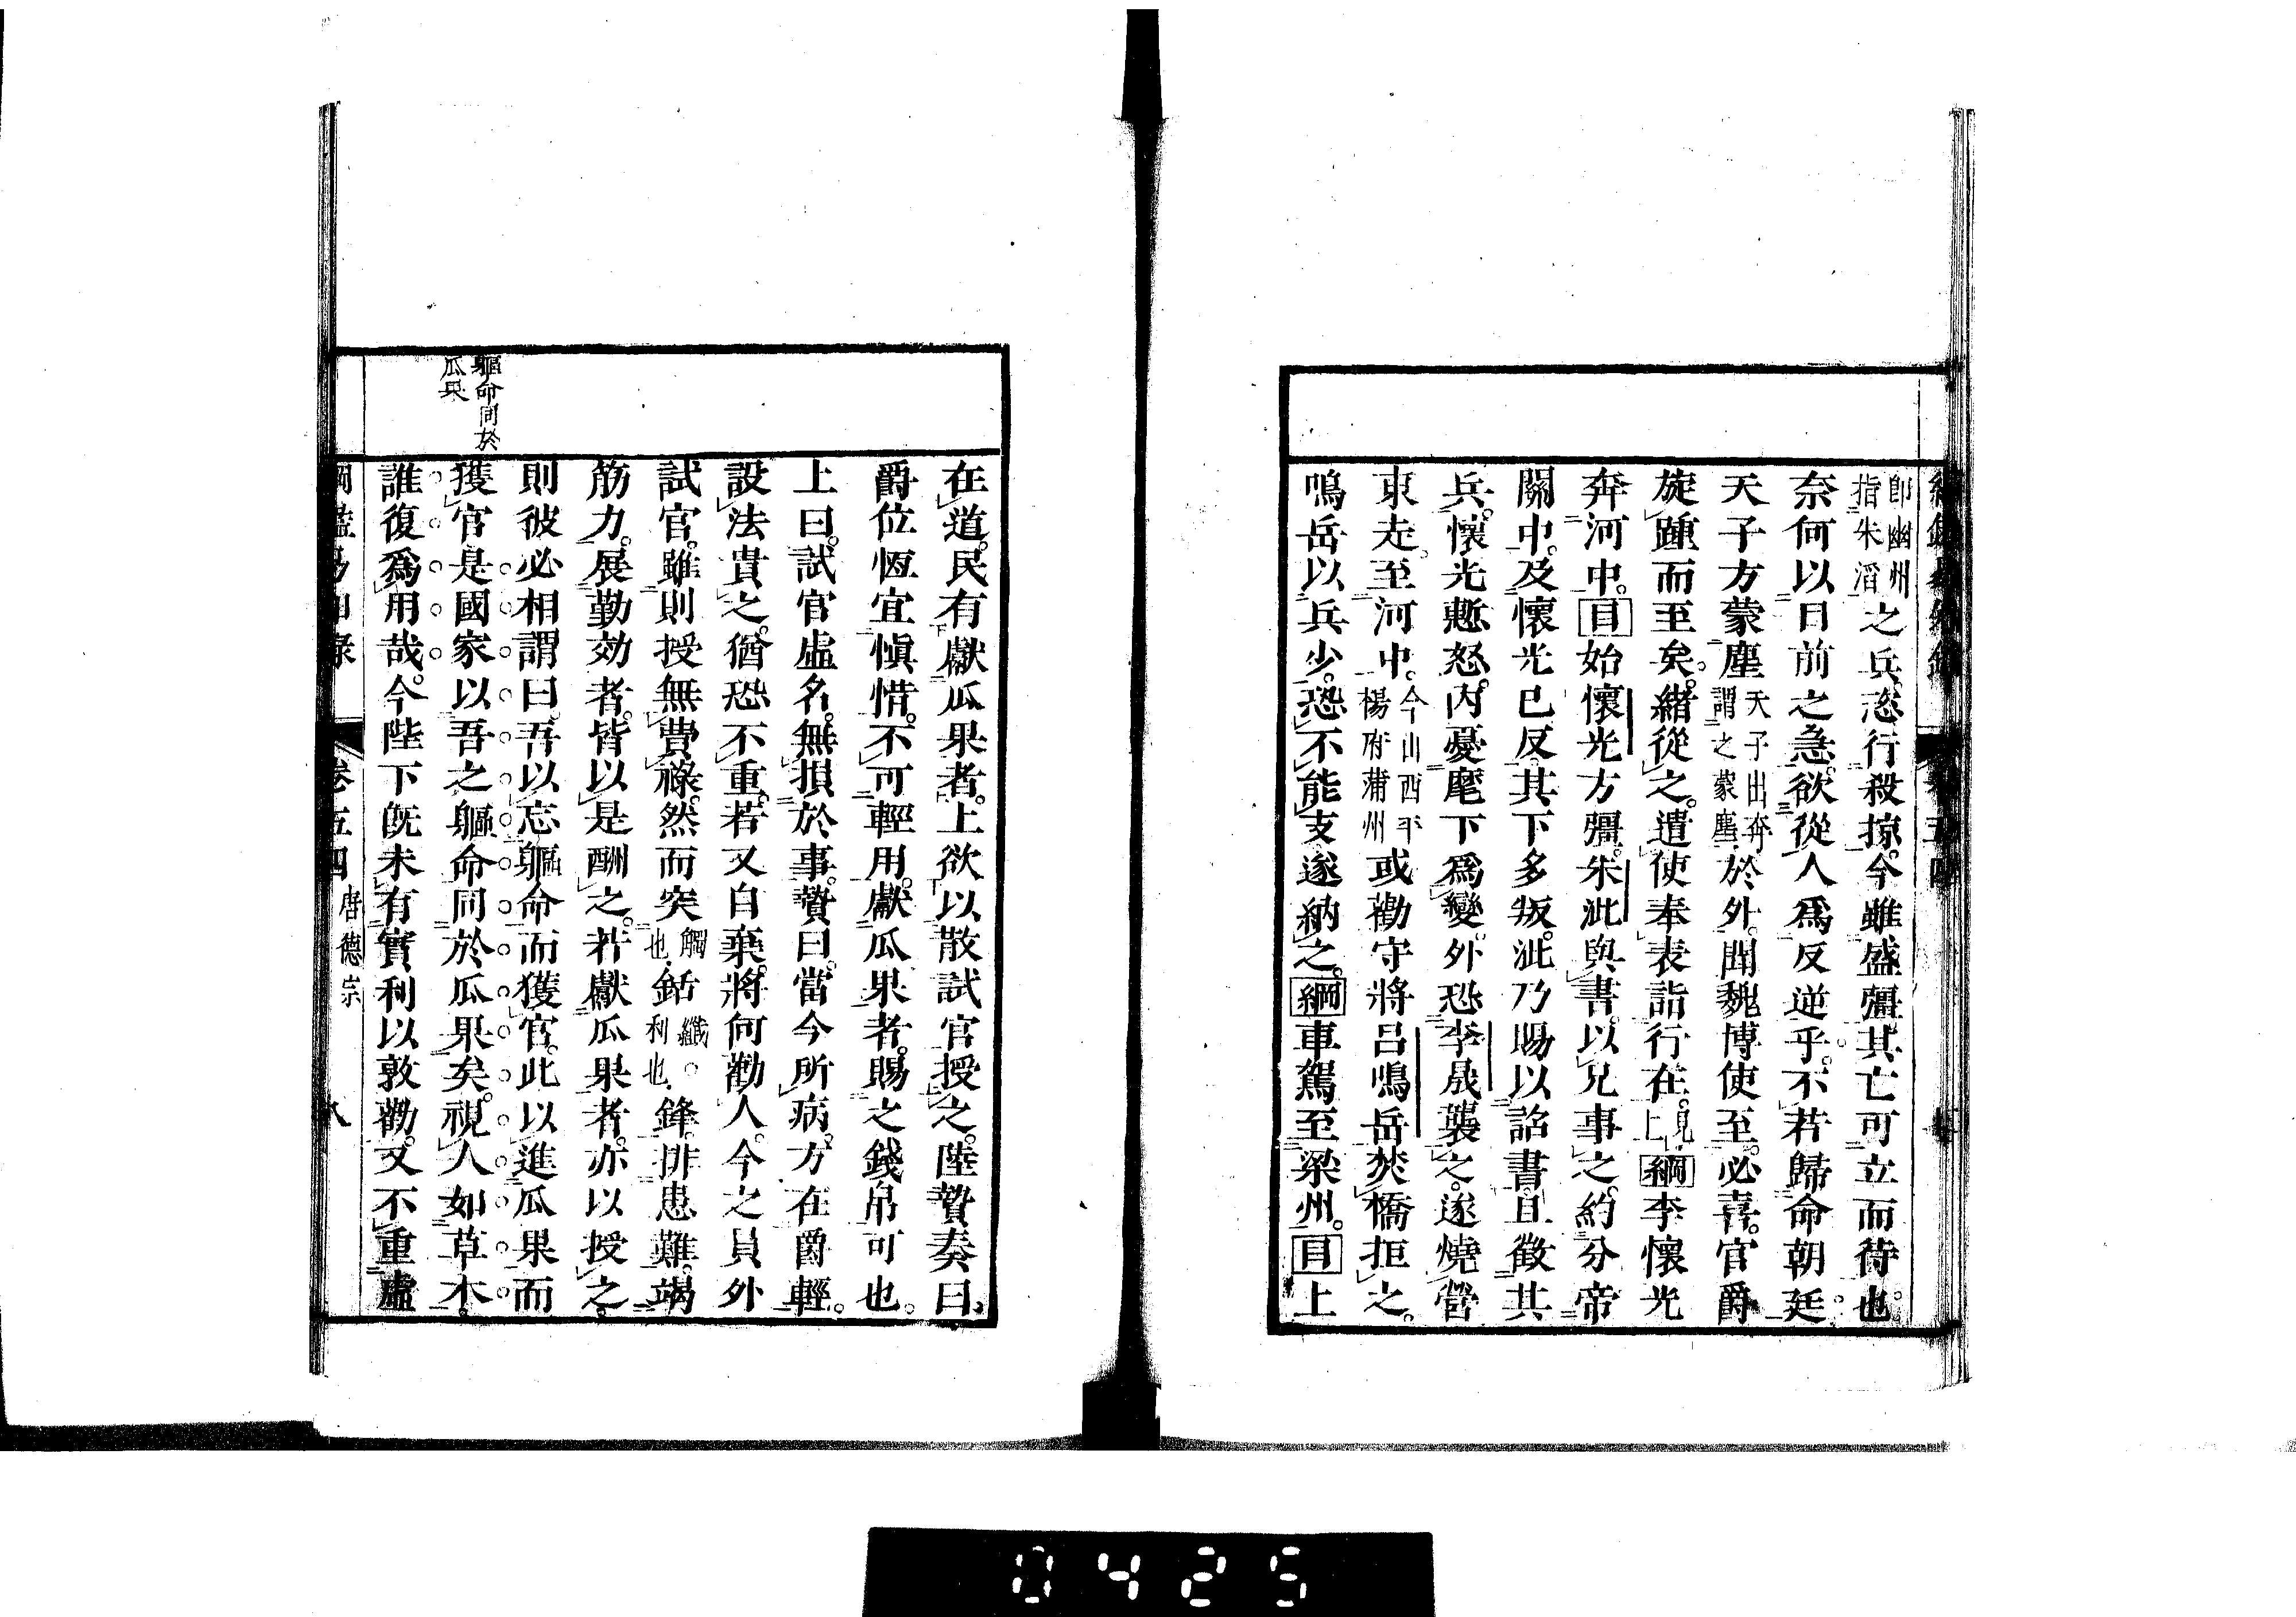 卽幽州
指朱滔之兵。恣行殺掠。今雖盛彊。其亡可立而待也。
奈何以日前之急。欲從人爲反逆乎。不若歸命朝廷。
天子方蒙塵天子出奔謂之蒙塵於外。聞魏博使至。必喜。官爵
旋踵而至矣。緒從之。遣使奉表詣行在。見上綱李懷光
奔河中。目始懷光方彊。朱泚與書。以兄事之。約分帝
關中。及懷光已反。其下多叛。泚乃賜以詔書且徵其
兵。懷光慙怒。內憂麾下爲變。外恐李晟襲之。遂燒營
東走。至河中。今山西平楊府蒲州或勸守將呂鳴岳焚橋拒之。
鳴岳以兵少。恐不能支。遂納之。綱車駕至梁州。目上
在道。民有獻瓜果者。上欲以散試官授之。陸贄奏曰。
爵位恆宜愼惜。不可輕用。獻瓜果者。賜之錢帛可也。
上曰。試官虛名。無損於事。贄曰。當今所病。方在爵輕。
設法貴之。猶恐不重。若又自棄。將何勸人。今之員外
試官。雖則授無費祿。然而突觸也.銛纖。利也.鋒。排患難。竭
筋力。展勤效者。皆以是酬之。若獻瓜果者。亦以授之。
則彼必相謂曰。吾以忘軀命而獲官。此以進瓜果而
獲官。是國家以吾之軀命同於瓜果矣。視人如草木。
誰復爲用哉。今陛下旣未有實利以敦勸。又不重虛
軀命同於
瓜果
綱鑑易知錄 卷五四 唐德宗 八
0425